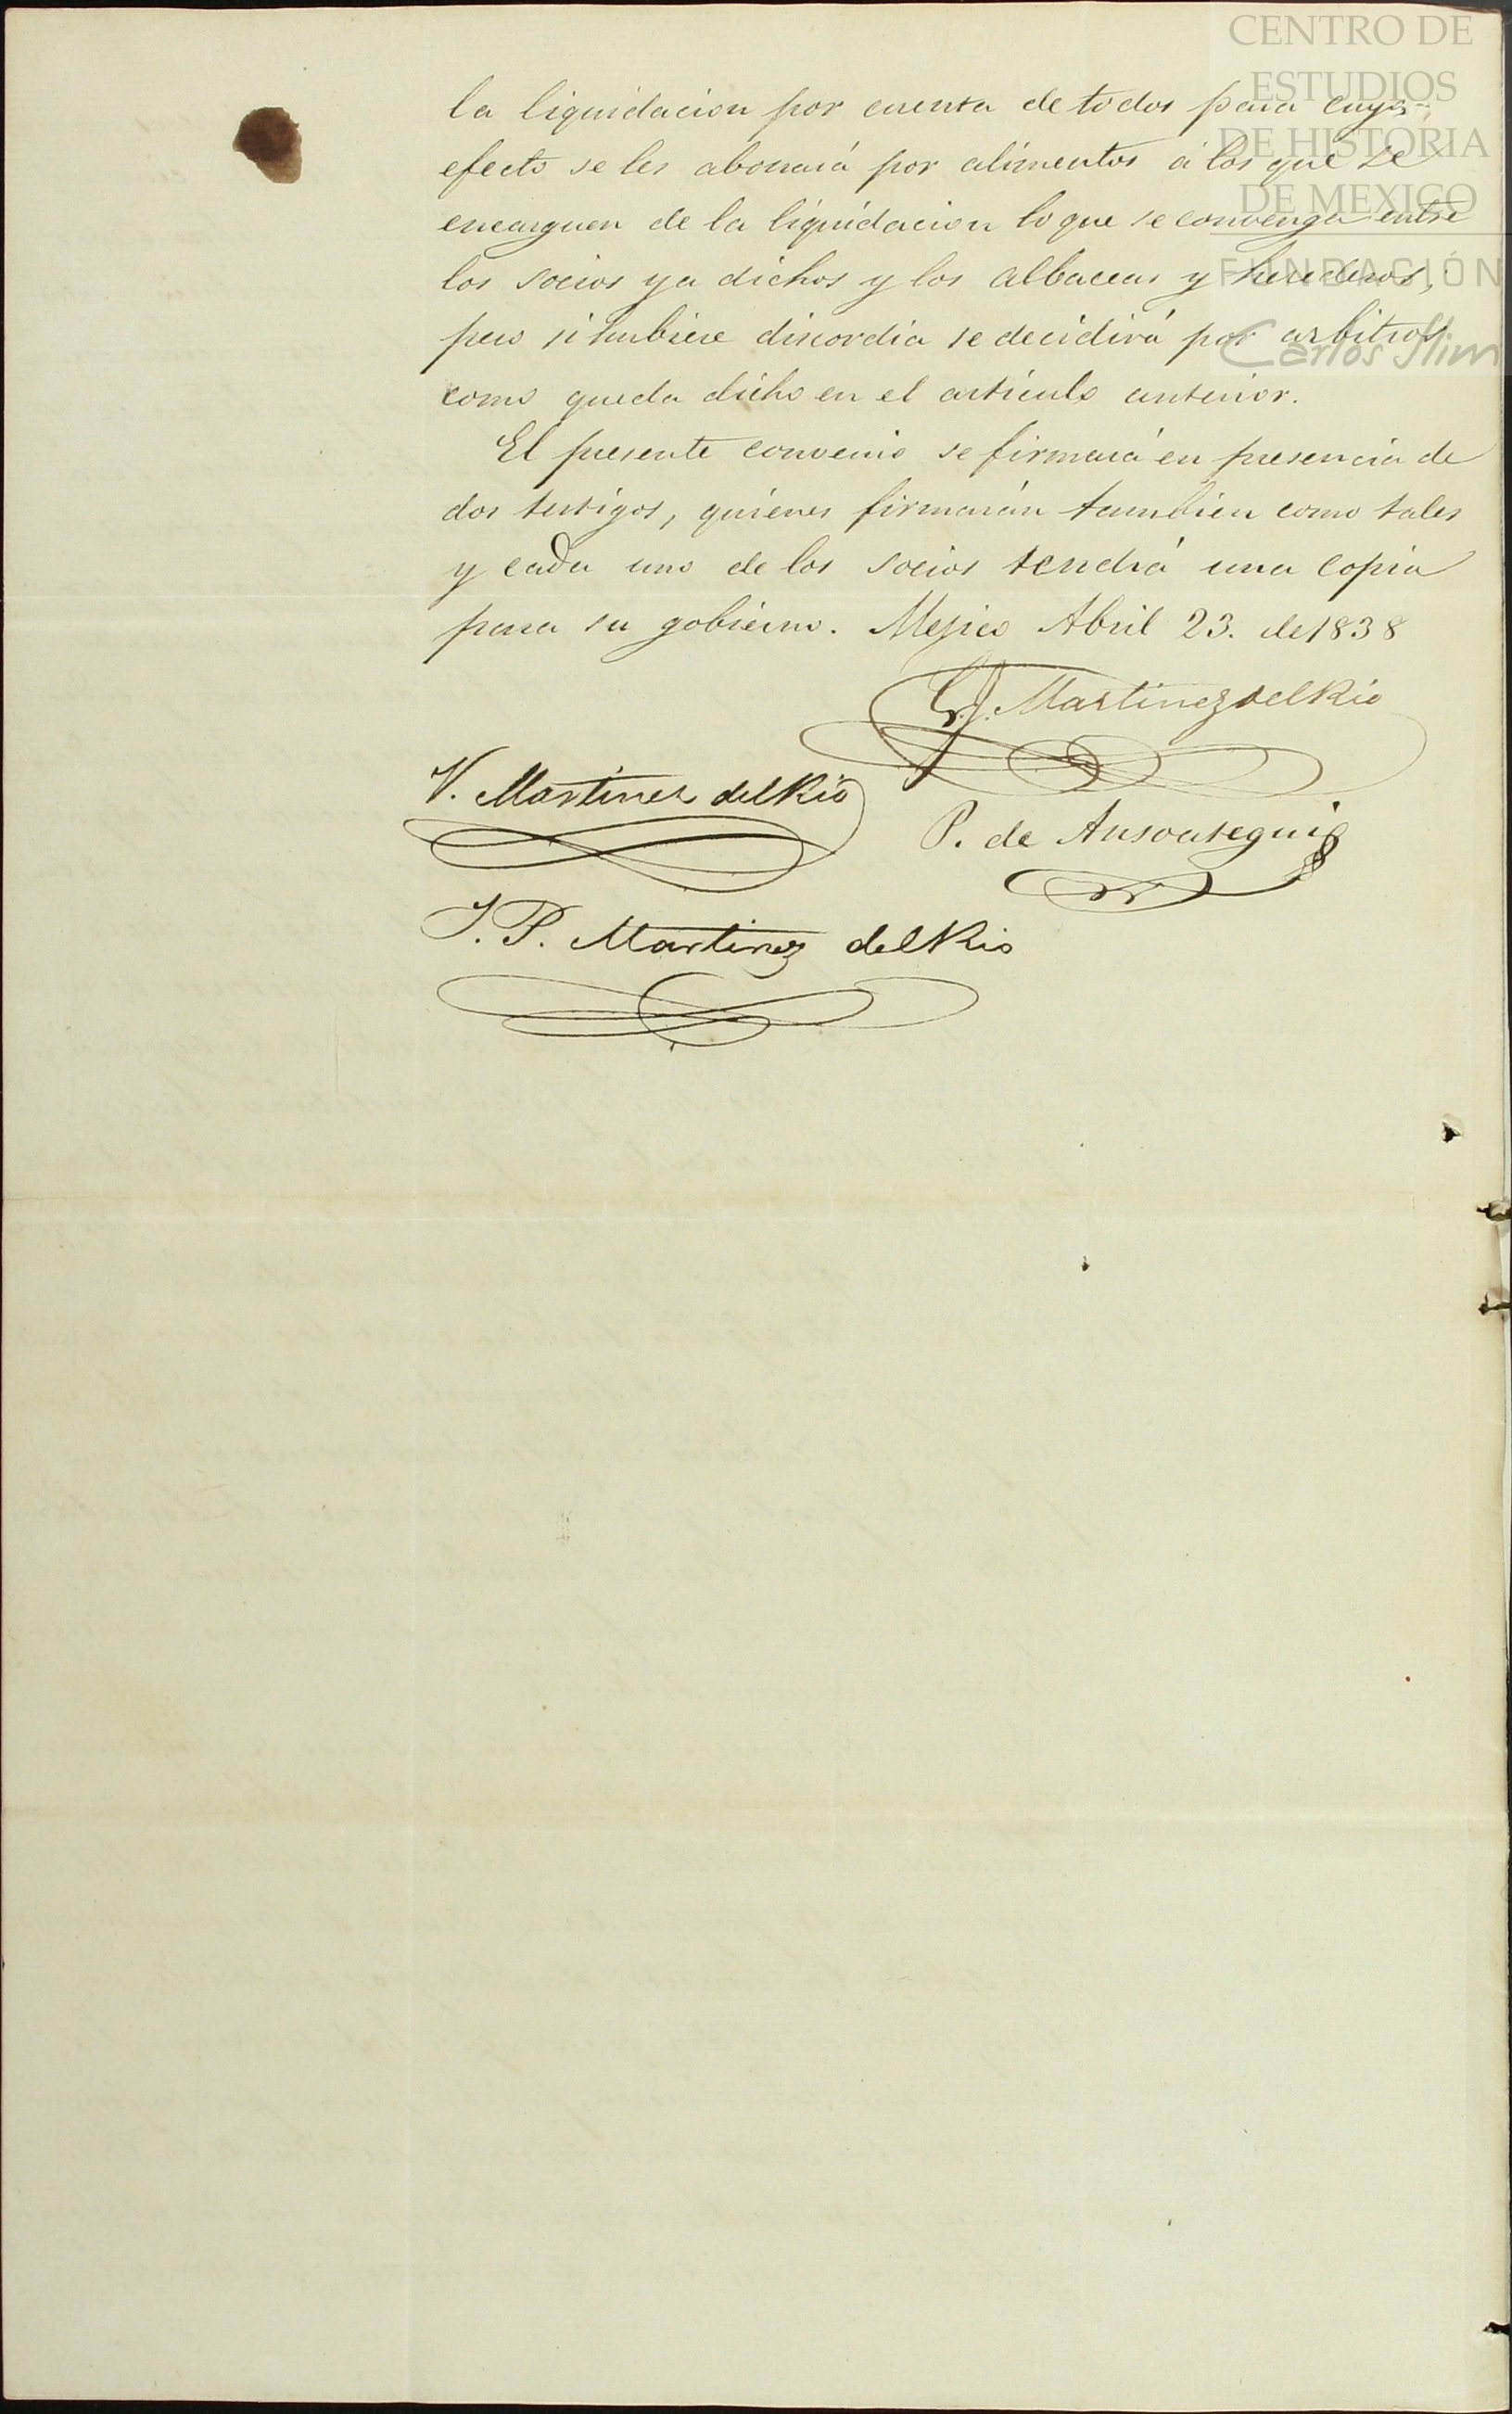 CENTRO DE
ESTUDIOS
DE HISTORIA
DE MEXICO
FUNDACIÓN
Carlos Slim
la liquidacion por cuenta de todos para cuyo
efecto se les abonará por alimentos á los que se
encarguen de la liquidacion lo que se convenga entre
los socios ya dichos y los albaceas y herederos,
pero si hubiere discordia se decidirá por arbitros
como queda dicho en el artículo anterior.
El presente convenio se firmará en presencia de
dos testigos, quienes firmarán tambien como tales
y cada uno de los socios tendrá una copia
para su gobierno. Mejico Abril 23. de 1838
G. J. Martinez del Rio
V. Martinez del Rio
P. de Ansoategui
J. P. Martinez del Rio